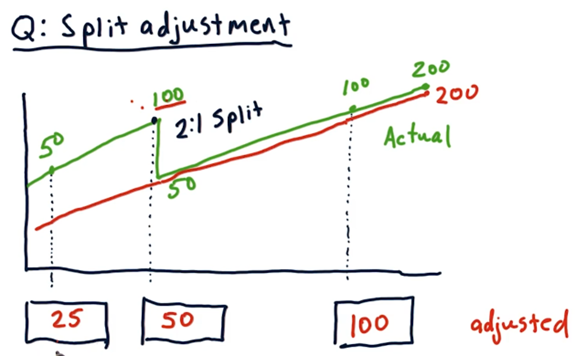 Q: Split adjustment
50
100
2:1 Split
50
100
200
200
Actual
25
50
100
adjusted